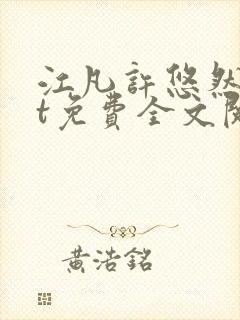 江凡許悠然
t免費全文閱
黃浩銘